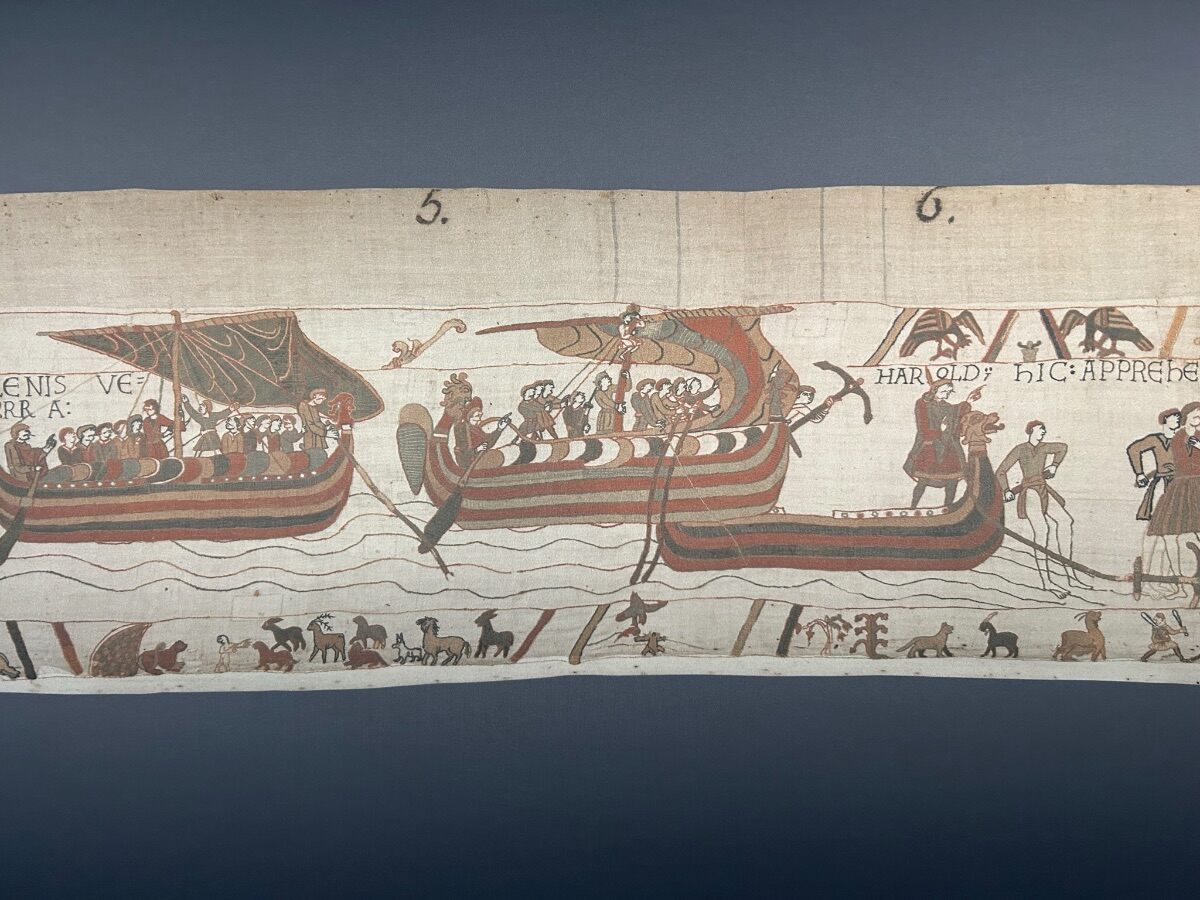 5.
6.
ENIS VE=
RR A:
HAROLDꝰ hIC: APPREhE